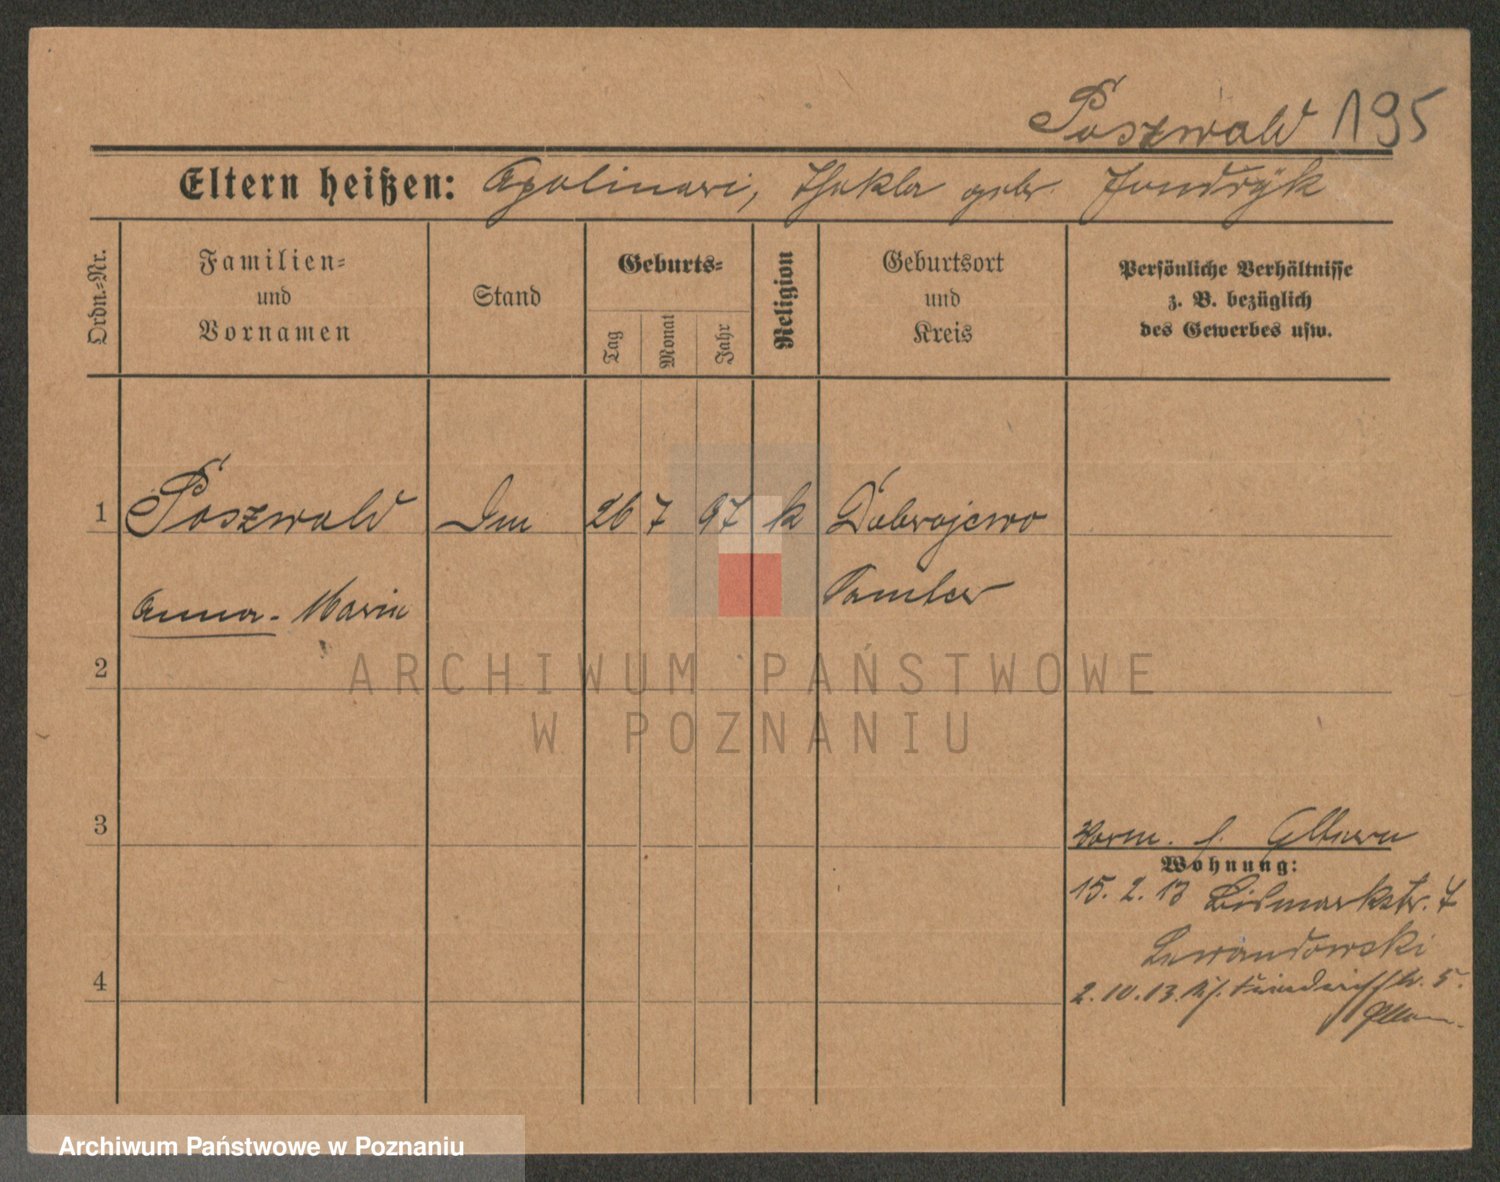 Poszwald 195
Eltern heißen: Apolinari, Thekla geb.
Ordn.-Nr.
Familien-
und
Vornamen
Stand
Geburts-
Tag
Monat
Jahr
Religion
Geburtsort
und
Kreis
Persönliche Verhältnisse
z. B. bezüglich
des Gewerbes usw.
1 Poszwald 26 7 97 k Dobrojewo
Anna- Maria Samter
2
ARCHIWUM PAŃSTWOWE
W POZNANIU
3
Wohnung:
15. 2. 13 Bismarkstr. 7
Lewandowski
4
2. 10. 13. 5.
Archiwum Państwowe w Poznaniu